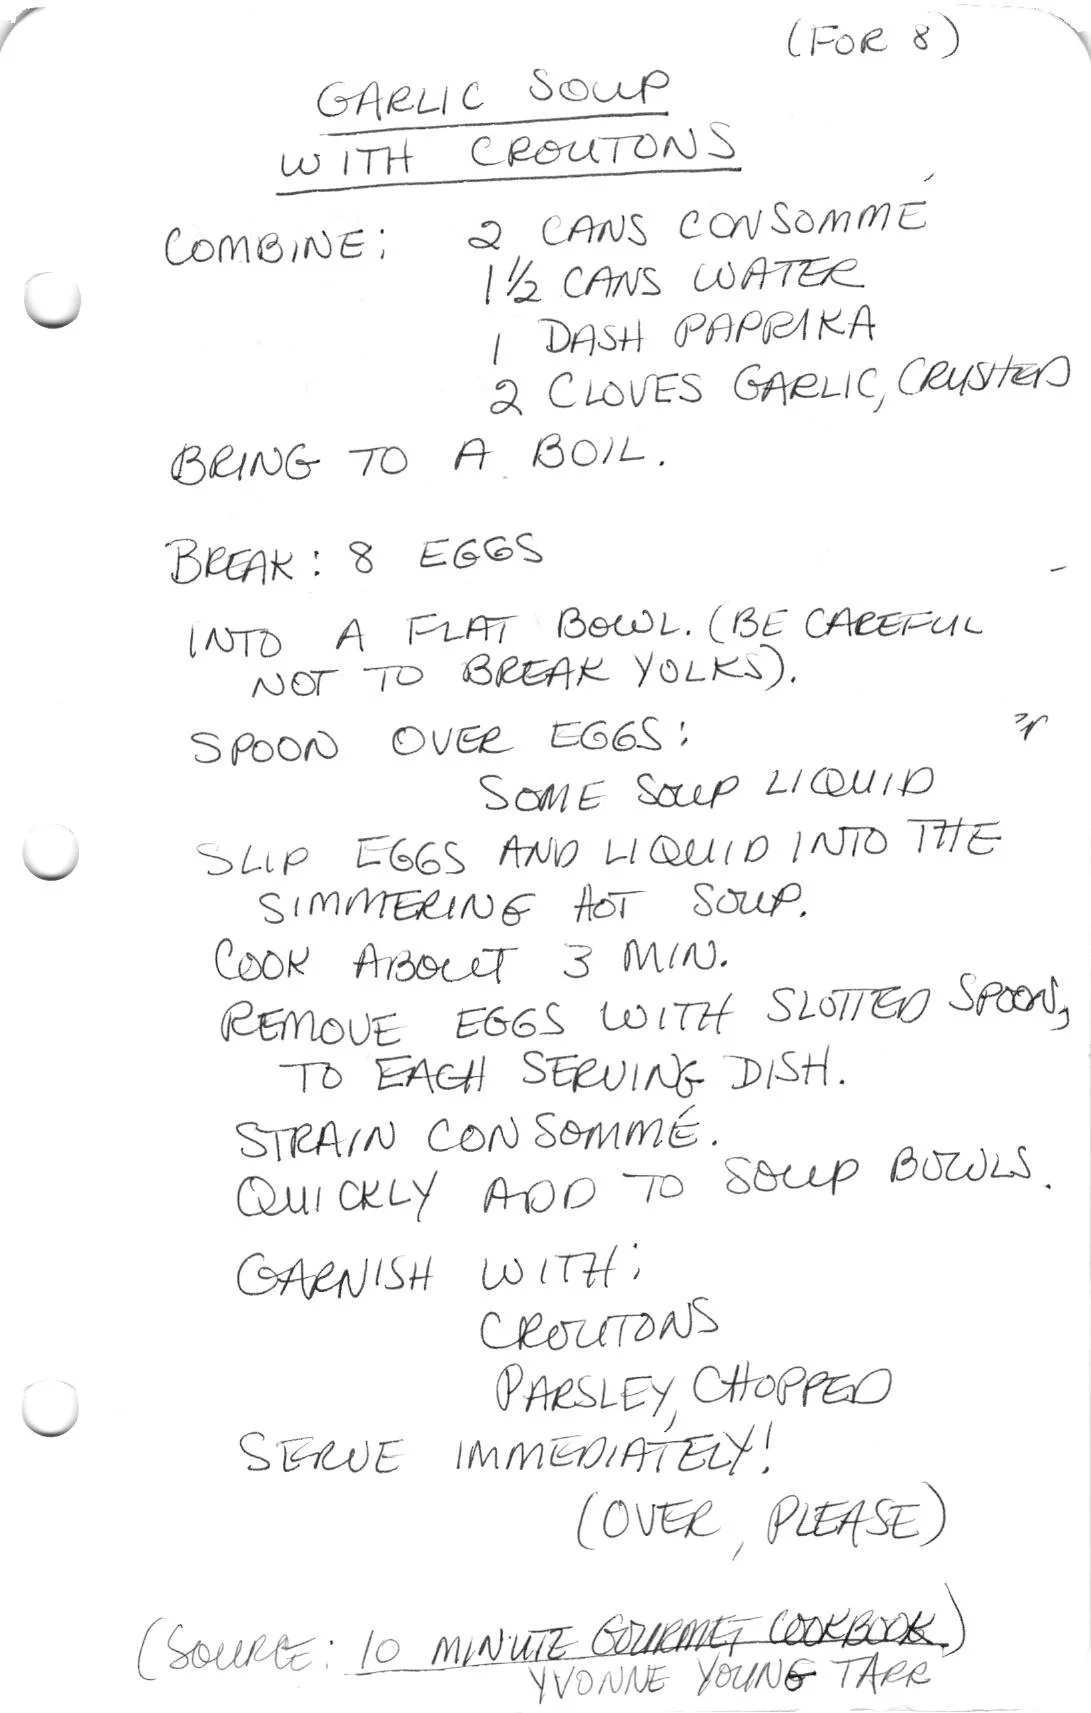 (FOR 8)
GARLIC SOUP
WITH CROUTONS
COMBINE: 2 CANS CONSOMMÉ
1 1/2 CANS WATER
1 DASH PAPRIKA
2 CLOVES GARLIC, CRUSHED
BRING TO A BOIL.
BREAK: 8 EGGS
INTO A FLAT BOWL. (BE CAREFUL
NOT TO BREAK YOLKS).
SPOON OVER EGGS:
SOME SOUP LIQUID
SLIP EGGS AND LIQUID INTO THE
SIMMERING HOT SOUP.
COOK ABOUT 3 MIN.
REMOVE EGGS WITH SLOTTED SPOON,
TO EACH SERVING DISH.
STRAIN CONSOMMÉ.
QUICKLY ADD TO SOUP BOWLS.
GARNISH WITH:
CROUTONS
PARSLEY, CHOPPED
SERVE IMMEDIATELY!
(OVER, PLEASE)
(SOURCE: 10 MINUTE GOURMET COOKBOOK)
YVONNE YOUNG TARR